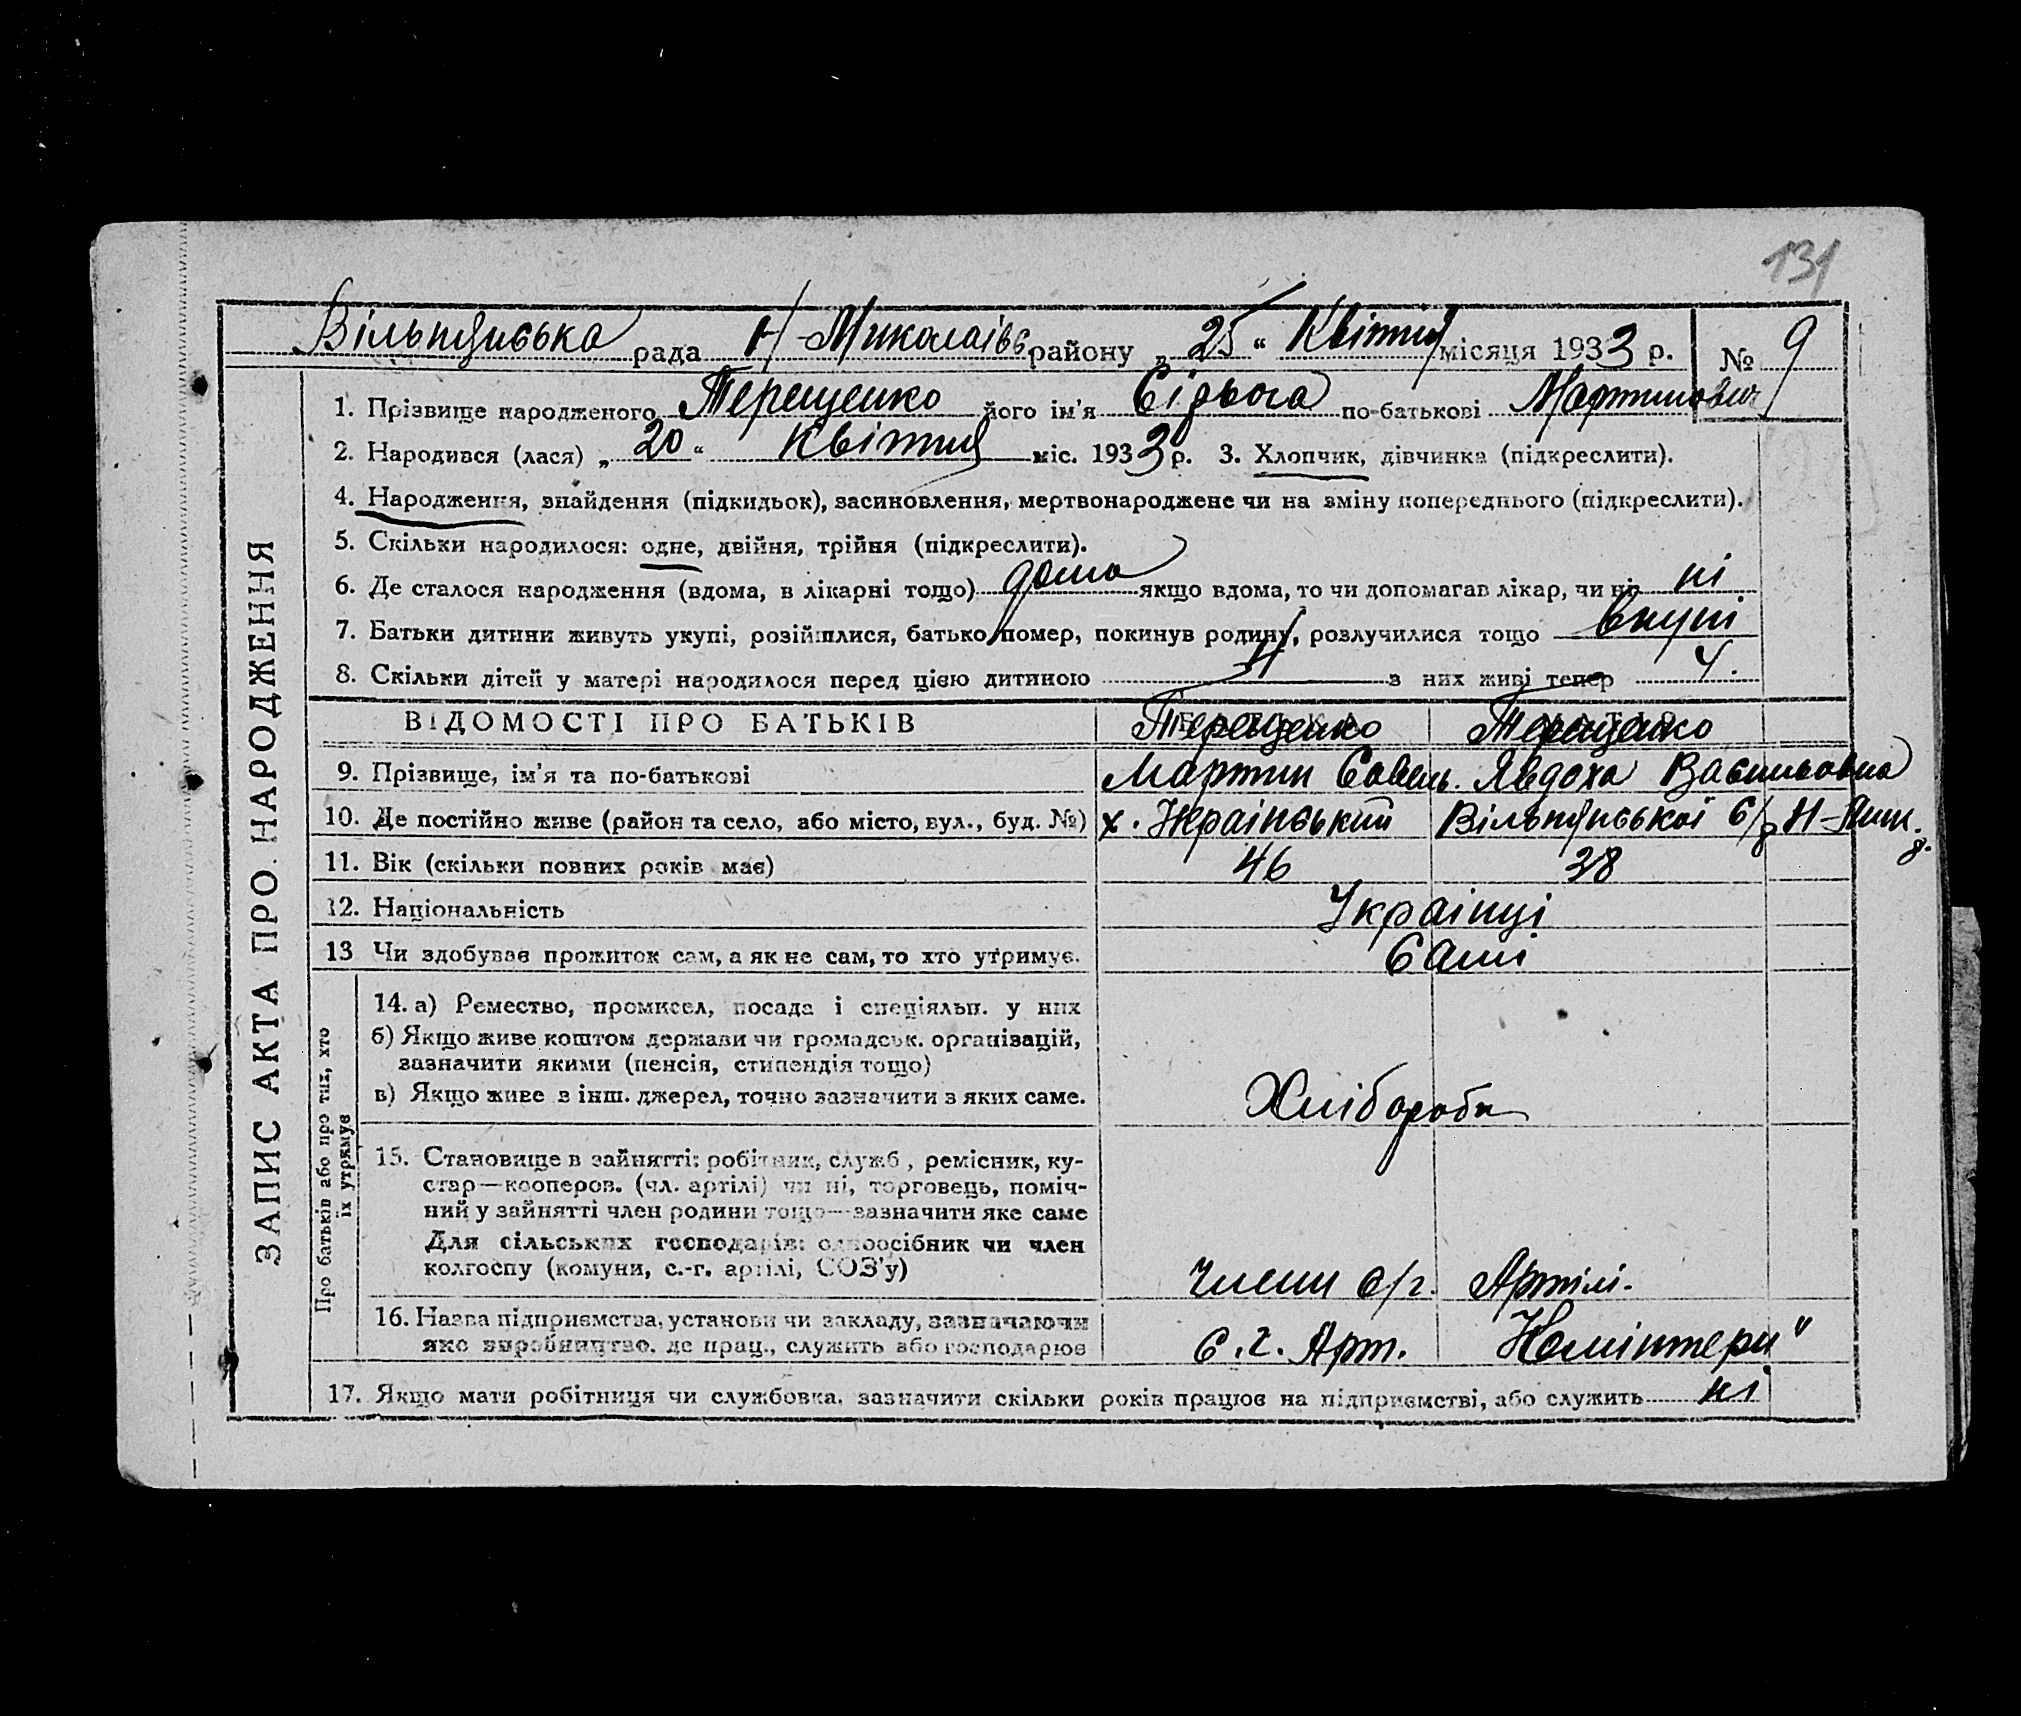 131
Вільнянська рада Н-Миколаівс району „25“ Квітня місяця 1933 р. № 9
1. Прізвище народженого Терещенко його ім'я Сірьога по-батькові Мартинович
2. Народився (лася) „20“ Квітня міс. 1933 р. 3. Хлопчик, дівчинка (підкреслити).
4. Народження, знайдення (підкидьок), засиновлення, мертвонароджене чи на зміну попереднього (підкреслити).
5. Скільки народилося: одне, двійня, трійня (підкреслити).
6. Де сталося народження (вдома, в лікарні тощо) дома якщо вдома, то чи допомагав лікар, чи ні ні
7. Батьки дитини живуть укупі, розійшлися, батько помер, покинув родину, розлучилися тощо вкупі
8. Скільки дітей у матері народилося перед цією дитиною 4 з них живі тепер 4.
ВІДОМОСТІ ПРО БАТЬКІВ Терещенко Терещенко
9. Прізвище, ім'я та по-батькові Мартин Савель. Явдоха Васильовна
10. Де постійно живе (район та село, або місто, вул., буд. №) х. Украінський Вільнянської с/р Н-
11. Вік (скільки повних років має) 46 38
12. Національність Украінці
13 Чи здобуває прожиток сам, а як не сам, то хто утримує. Самі
ЗАПИС АКТА ПРО НАРОДЖЕННЯ
Про батьків або про тих, хто
їх утримує
14. а) Ремество, промисел, посада і спеціяльн. у них
б) Якщо живе коштом держави чи громадськ. організацій,
зазначити якими (пенсія, стипендія тощо)
в) Якщо живе з інш. джерел, точно зазначити з яких саме. Хлібороби
15. Становище в зайнятті: робітник, служб., ремісник, ку-
стар—кооперов. (чл. артілі) чи ні, торговець, поміч-
ний у зайнятті член родини тощо—зазначити яке саме
Для сільських господарів: одноосібник чи член
колгоспу (комуни, с.-г. артілі, СОЗ'у) Члени с/г. Артілі.
16. Назва підприємства, установи чи закладу, зазначаючи
яке виробництво, де прац., служить або господарює С.г. Арт. Комінтерн"
17. Якщо мати робітниця чи службовка, зазначити скільки років працює на підприємстві, або служить ні